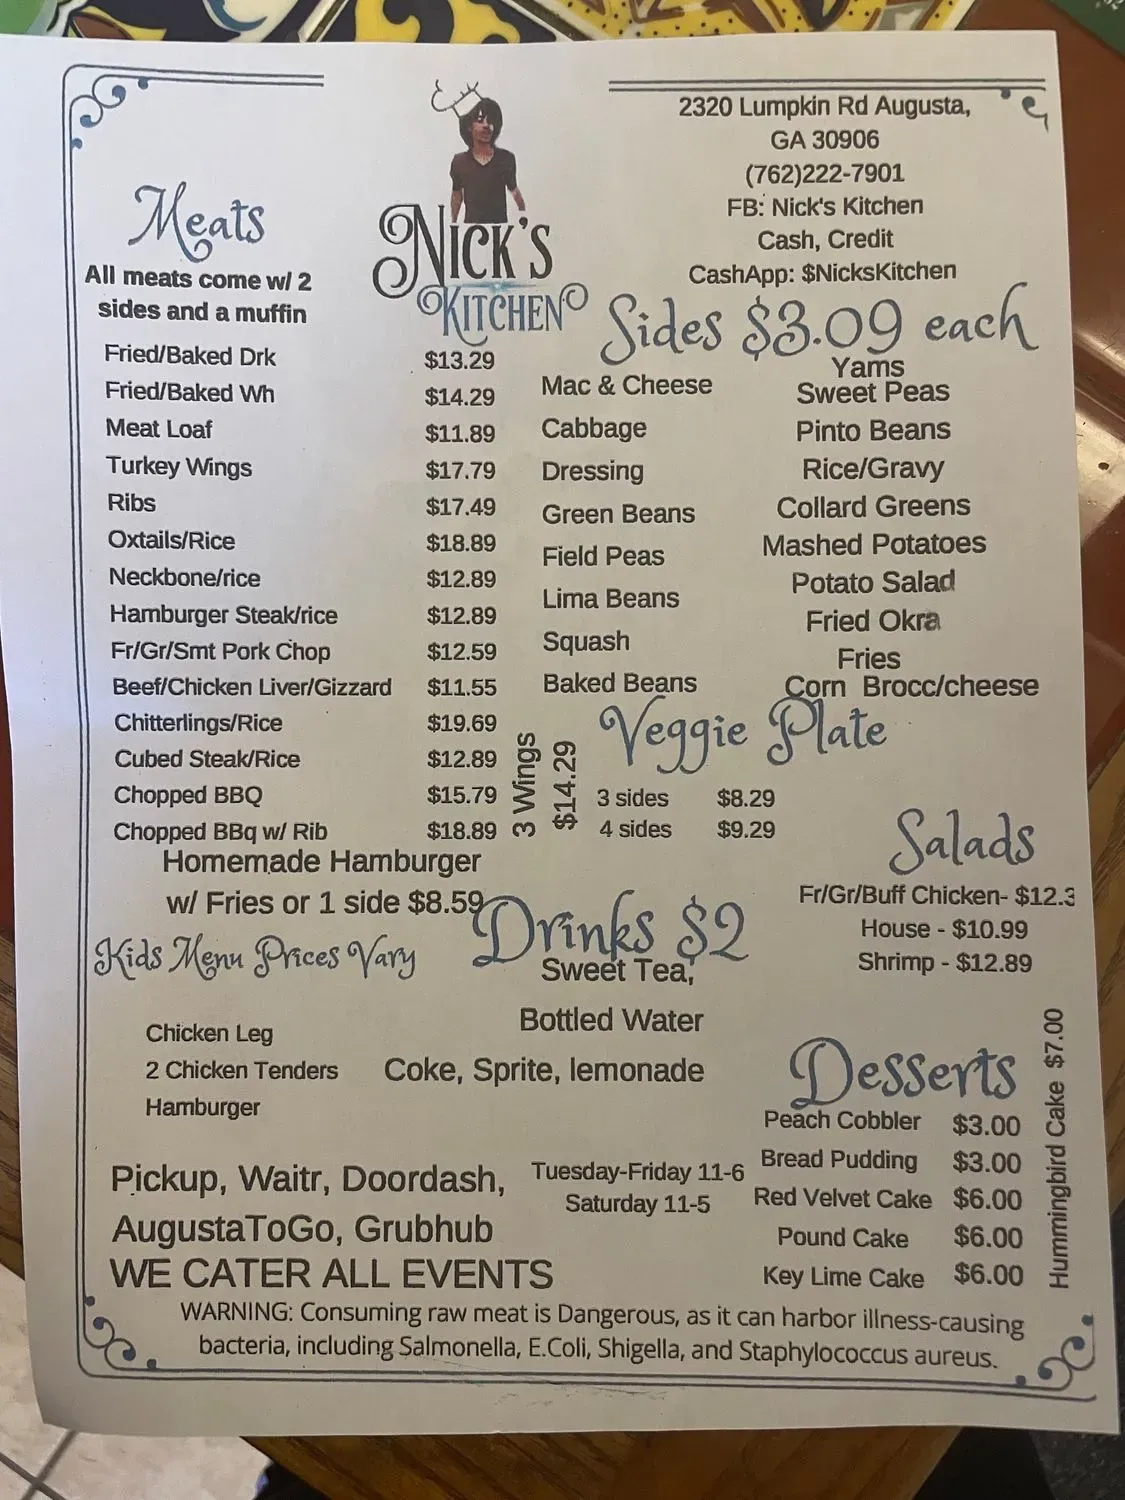 2320 Lumpkin Rd Augusta,
GA 30906
(762)222-7901
FB: Nick's Kitchen
Cash, Credit
CashApp: $NicksKitchen
NICK'S
KITCHEN
Meats
All meats come w/ 2
sides and a muffin
Fried/Baked Drk $13.29
Fried/Baked Wh $14.29
Meat Loaf $11.89
Turkey Wings $17.79
Ribs $17.49
Oxtails/Rice $18.89
Neckbone/rice $12.89
Hamburger Steak/rice $12.89
Fr/Gr/Smt Pork Chop $12.59
Beef/Chicken Liver/Gizzard $11.55
Chitterlings/Rice $19.69
Cubed Steak/Rice $12.89
Chopped BBQ $15.79
Chopped BBq w/ Rib $18.89
3 Wings
$14.29
Homemade Hamburger
w/ Fries or 1 side $8.59
Sides $3.09 each
Mac & Cheese
Cabbage
Dressing
Green Beans
Field Peas
Lima Beans
Squash
Baked Beans
Yams
Sweet Peas
Pinto Beans
Rice/Gravy
Collard Greens
Mashed Potatoes
Potato Salad
Fried Okra
Fries
Corn Brocc/cheese
Veggie Plate
3 sides $8.29
4 sides $9.29
Salads
Fr/Gr/Buff Chicken- $12.3
House - $10.99
Shrimp - $12.89
Kids Menu Prices Vary
Chicken Leg
2 Chicken Tenders
Hamburger
Drinks $2
Sweet Tea,
Bottled Water
Coke, Sprite, lemonade
Desserts
Peach Cobbler $3.00
Bread Pudding $3.00
Red Velvet Cake $6.00
Pound Cake $6.00
Key Lime Cake $6.00
Hummingbird Cake $7.00
Pickup, Waitr, Doordash,
AugustaToGo, Grubhub
WE CATER ALL EVENTS
Tuesday-Friday 11-6
Saturday 11-5
WARNING: Consuming raw meat is Dangerous, as it can harbor illness-causing
bacteria, including Salmonella, E.Coli, Shigella, and Staphylococcus aureus.